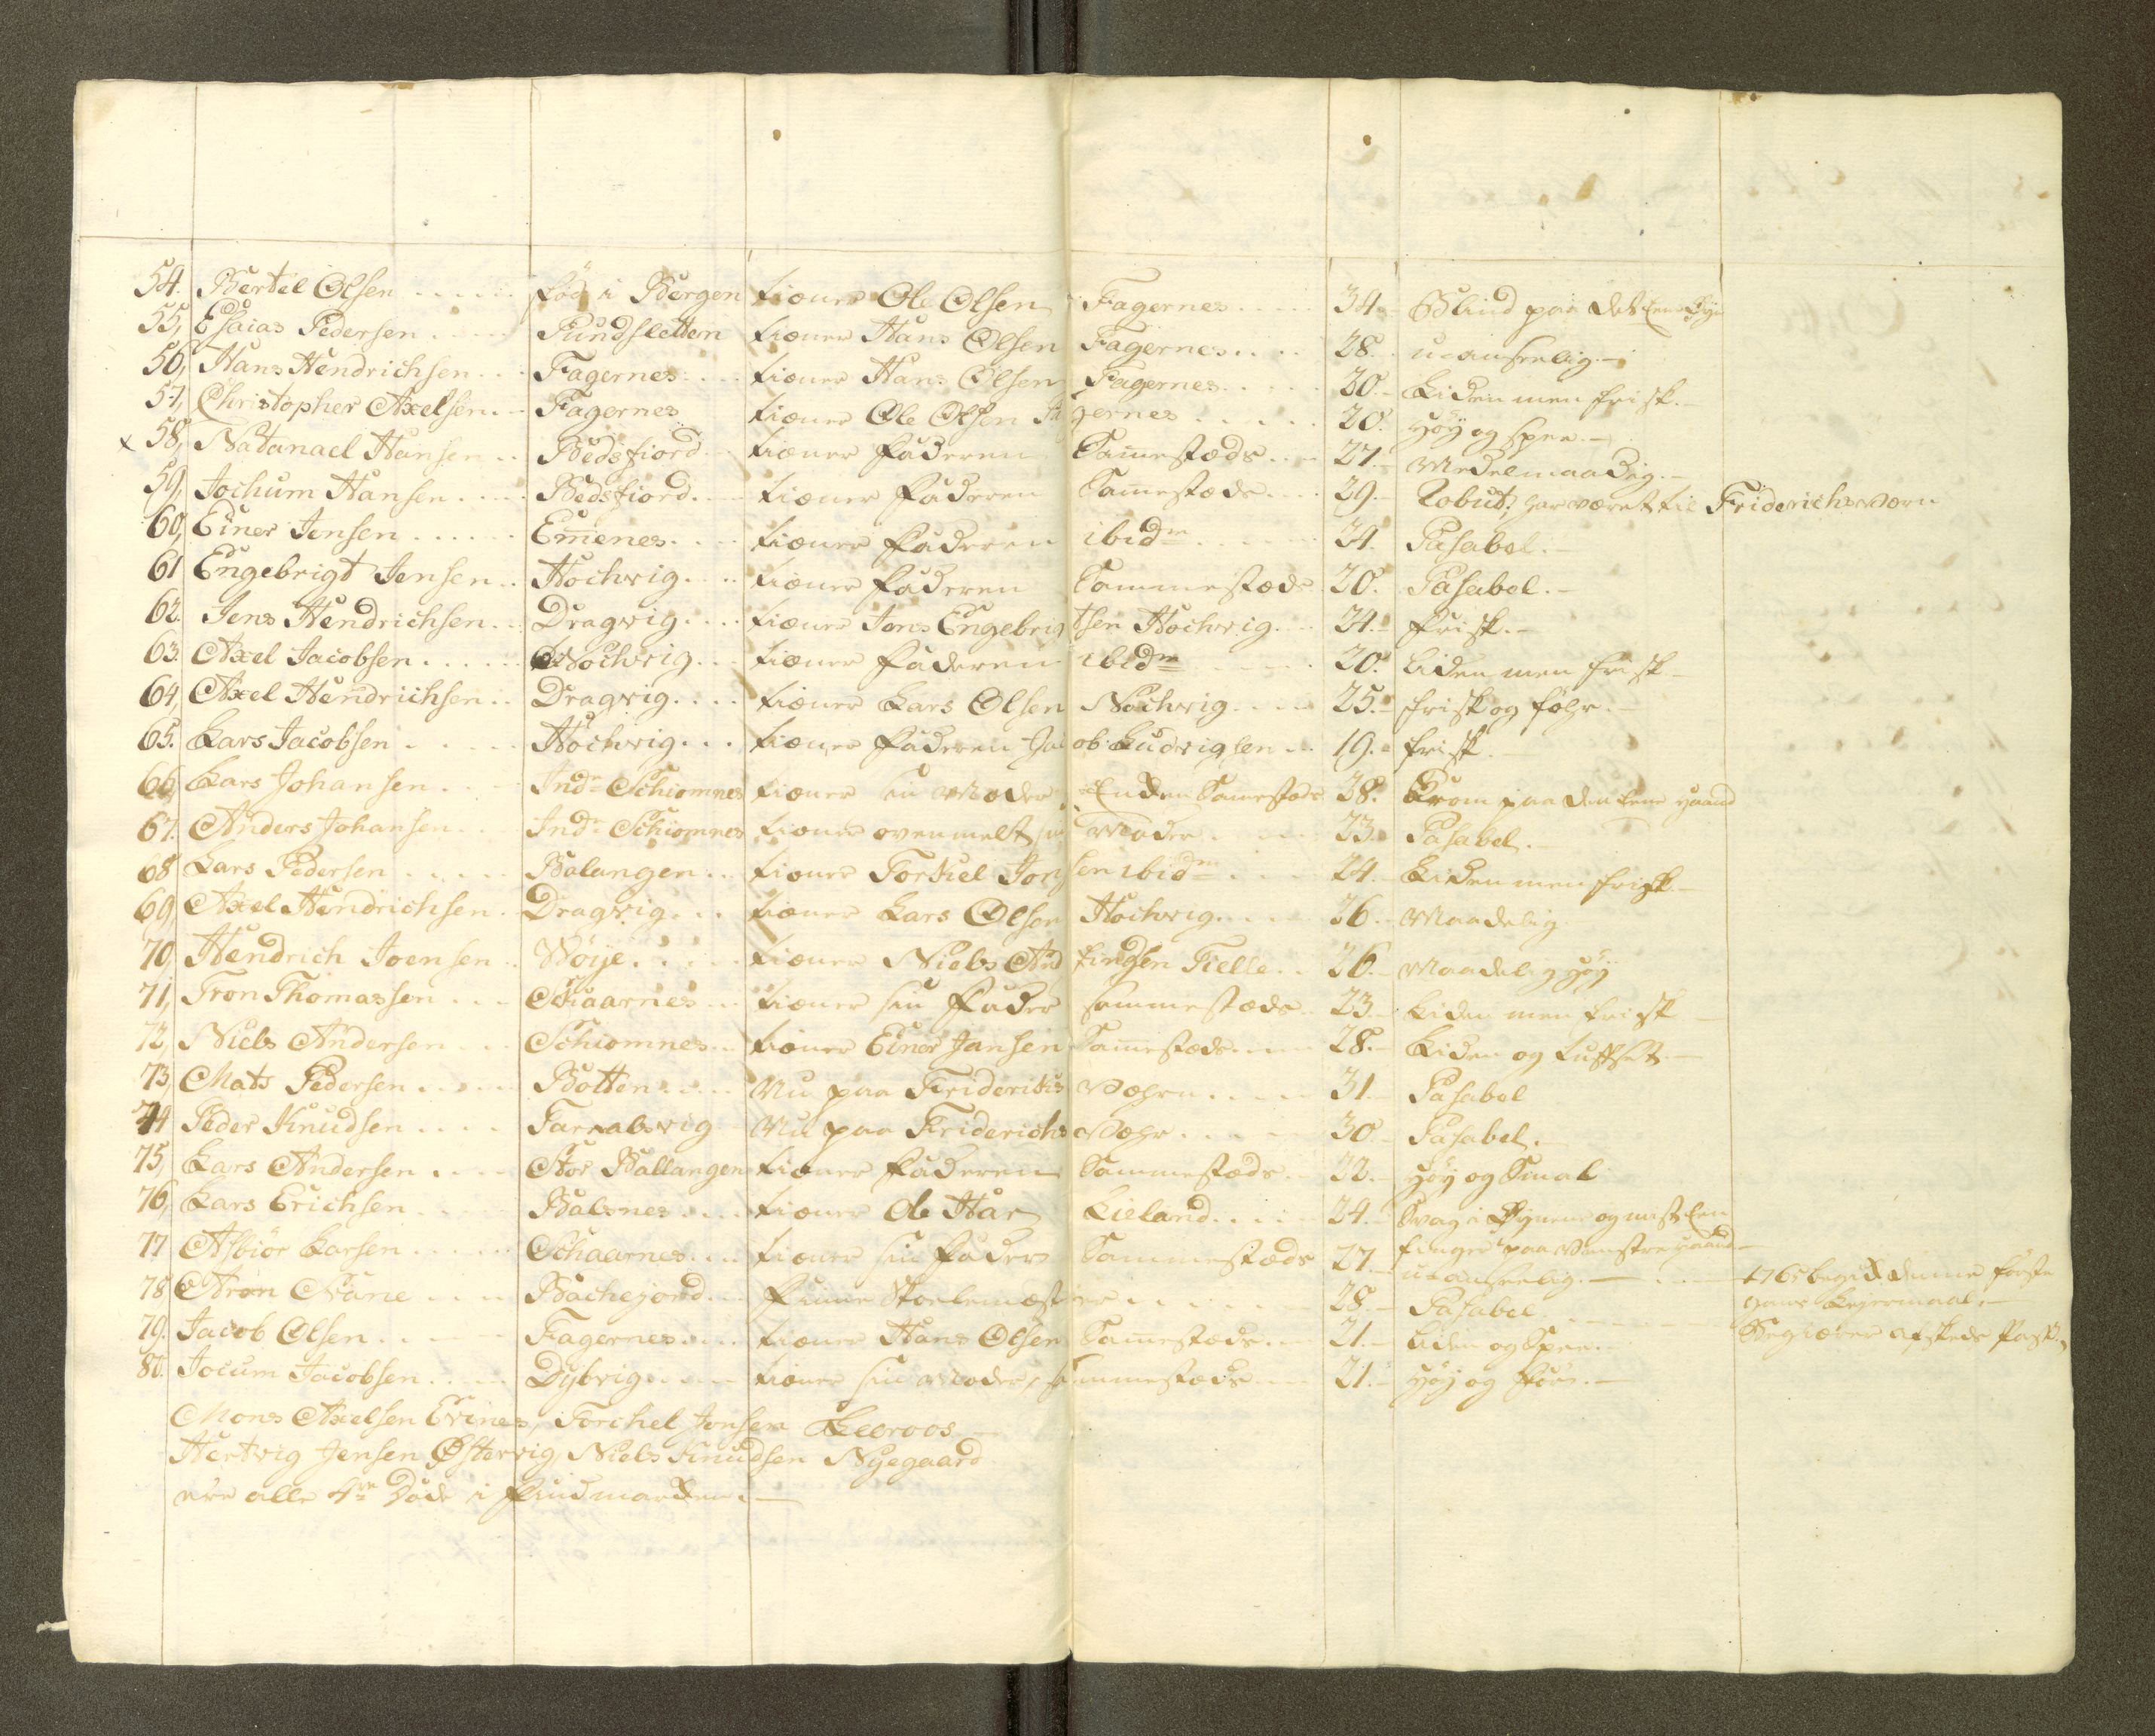 54. Bertel Olsen ..... fød i Bergen tiener Ole Olsen Fagernes ..... 34.- Blind paa det Eene Øye
55, Esaias Pedersen ..... Pundsletten tiener Hans Olsen Fagernes .... 28. uanseelig.-
56, Hans Hendrichsen ... Fagernes .... tiener Hans Olsen Fagernes ..... 30.- Liden men frisk.-
57, Christopher Axelsen .- Fagernes tiener Ole Olsen Fagernes ..... 20. Høy og spee.-
x 58, Natanael Hansen .. Bedsfiord .. tiener faderen Samestæds ... 27.- Medelmaadig.-
59, Jochum Hansen ..... Bedsfiord .... tiener faderen Samestæds .... 29.- Robust; har været til Friderichsværn
60, Einer Jensen ...... Emenes .... tiener faderen ibidm ..... 24. Pasabel.-
61 Engebrigt Jensen .. Hochvig .... tiener faderen Sammestæds 20. Pasabel.-
62. Jens Hendrichsen .. Dragvig .... tiener Jens Engebrigtsen Hochvig ... 24.- frisk.-
63. Axel Jacobsen ...... Hochvig ... tiener faderen ibidm .... 20. Liden men frisk-
64, Axel Hendrichsen .. Dragvig .... tiener Lars Olsen Hochvig ..... 25.- frisk og føhr.-
65. Lars Jacobsen ...... Hochvig ... tiener faderen Jacob Ludvigsen .. 19.- frisk.-
66, Lars Johansen .... Indr Schiomnes tiener sin Moder Enken Samestæds 38. Krom paa den Eene Haand
67. Anders Johansen .. Indr Schiomnes tiener ovenmelt sin Moder .... 23.- Pasabel.-
68 Lars Pedersen ..... Balangen .. tiener Torkiel Jonsen ibidm ... 24.- Liden men frisk.-
69, Axel Hendrichsen . Dragvig ... tiener Lars Olsen Hochvig .... 26.- Maadelig
70, Hendrich Joensen .. Bøije ..... tiener Niels Arntindsen Fielle .. 26.- Maadelig Høy
71, Tron Thomassen ... Schaarnes .. tiener sin fader sammestæds .. 23.- Liden men frisk-
72, Niels Andersen ... Schiomnes .. tiener Einer Jansen Samestæds .... 28.- Liden og
73, Mats Pedersen ..... Botten ..... Nu paa Friderichs Væhrn ..... 31.- Pasabel
74 Peder Knudsen .... Tarralsvig Nu paa Friderichs Væhr .... 30.- Pasabel.-
75, Lars Andersen .... Stor Ballangen tiener faderen Sammestæds .. 22.- Høy og Smal
76, Lars Erichsen .... Balsnes .... tiener Ole Har Lieland ..... 24.- Svag i Øynene og mist Een
77 Asbiør Larsen ...... Schaarnes ... tiener sin fader Sammestæds 27.- finger paa Venstre Haand- uanseelig.-
78, Aron Nane .... Bachejord ... finne Skolemæster ....... 28.- Pasabel ....... 1765 begik denne første hans Leyermaal.-
79. Jacob Olsen ..... Fagernes .... tiener Hans Olsen Samestæds ... 21.- Liden og Spee.- Begiærer afskeds Pass.,
80. Jocum Jacobsen ..... Dybvig ..... tiener sin Moder, sammestæds ... 21.- Høy og før.-
Mons Axelsen Evines, Torchel Jonsen
Hertvig Jensen Østervig, Niels Knudsen Nyegaard
ere alle 4re Døde i findmarken.-